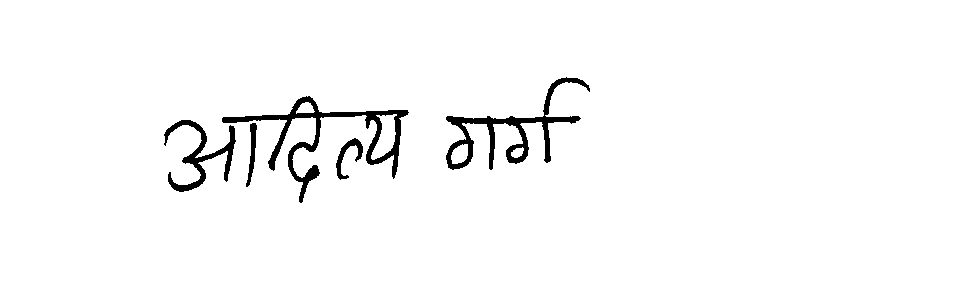 आदित्य गर्ग